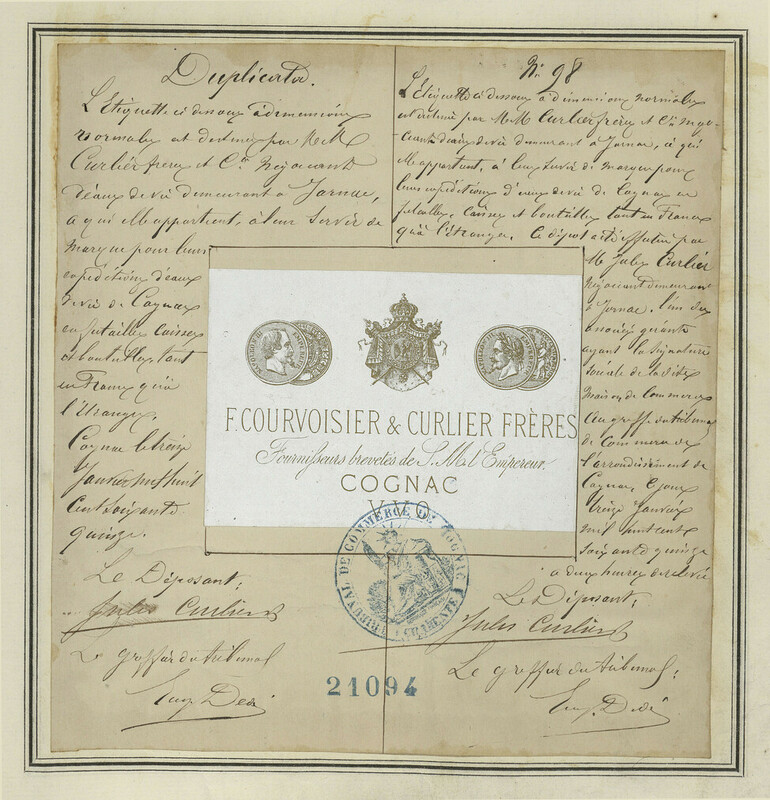 Duplicata.
L'Etiquette ci dessous à dimensions
normales est destinée par M M
Curlier frères et Cie Négociants
d'eaux de vie demeurant à Jarnac,
à qui elle appartient, à leur servir de
marque pour leurs
expéditions d'eaux
de vie de Cognac
en futailles, caisses
et bouteilles tant
en France qu'à
l'Etranger.
Cognac le treize
Janvier mil huit
cent soixante
quinze.
Le Déposant,
Jules Curlier
Le greffier du tribunal
No 98
L'Etiquette ci dessous à dimensions normales
est destinée par M M Curlier frères et Cie Négo-
ciants d'eaux de vie demeurant à Jarnac, à qui
elle appartient, à leur servir de marque pour
leurs expéditions d'eaux de vie de Cognac en
futailles, caisses et bouteilles tant en France
qu'à l'étranger. Ce dépôt a été effectué par
M Jules Curlier
Négociant demeurant
à Jarnac, l'un des
associés gérants
ayant la signature
sociale de la dite
maison de Commerce
Au greffe du tribunal
de Commerce de
l'arrondissement de
Cognac, ce jour
treize Janvier
mil huit cent
soixante quinze
à deux heures de relevée
Le Déposant,
Jules Curlier
Le greffier du tribunal,
F. COURVOISIER & CURLIER FRÈRES
Fournisseurs brevetés de S. M. l'Empereur.
COGNAC
TRIBUNAL DE COMMERCE DE COGNAC
CHARENTE
21094